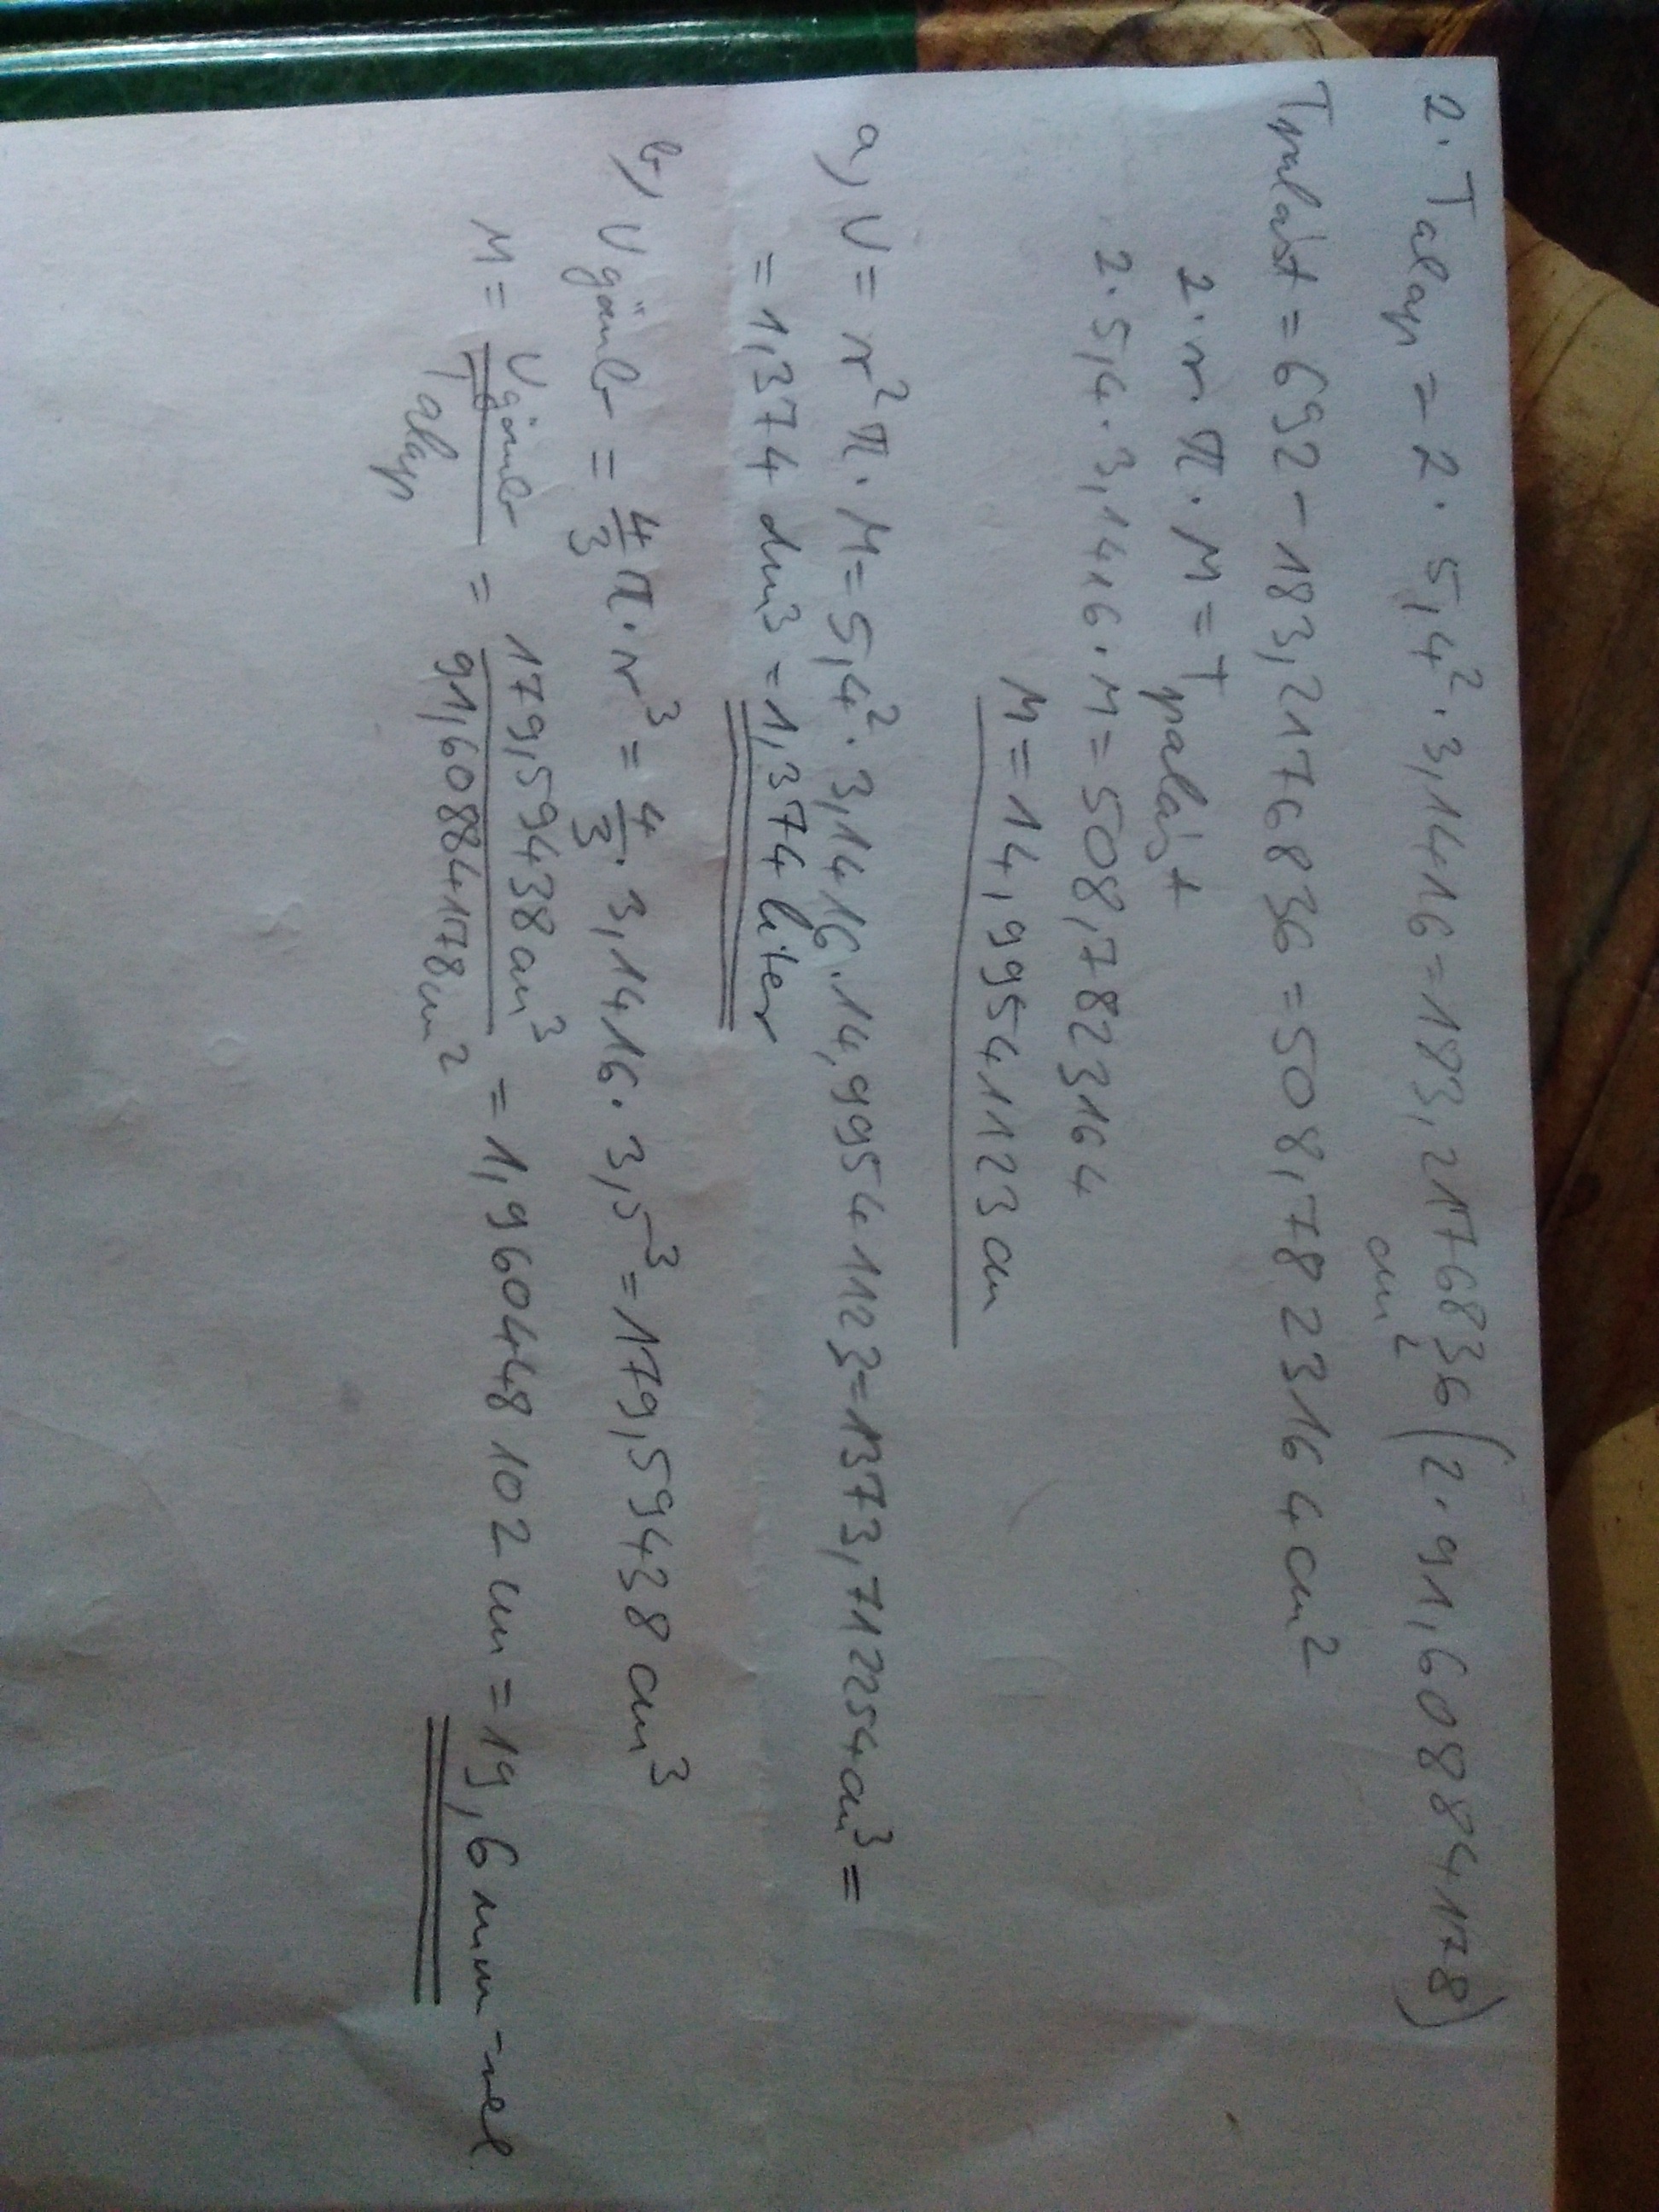 2·Talap = 2·5,4²·3,1416=183,2176836 (2·91,60884178)
cm²
Tpalást = 692-183,2176836=508,7823164cm²
2·r·π·M=Tpalást
2·5,4·3,1416·M=508,7823164
M=14,99541123cm
a, V=r²π·M=5,4²·3,1416·14,99541123=1373,712254cm³=
=1,374 dm³=1,374 liter
b, Vgömb = 4/3 π·r³ = 4/3·3,1416·3,5³=179,59438cm³
M= Vgömb/Talap = 179,59438cm³/91,60884178cm² = 1,960448102cm=19,6mm-nel